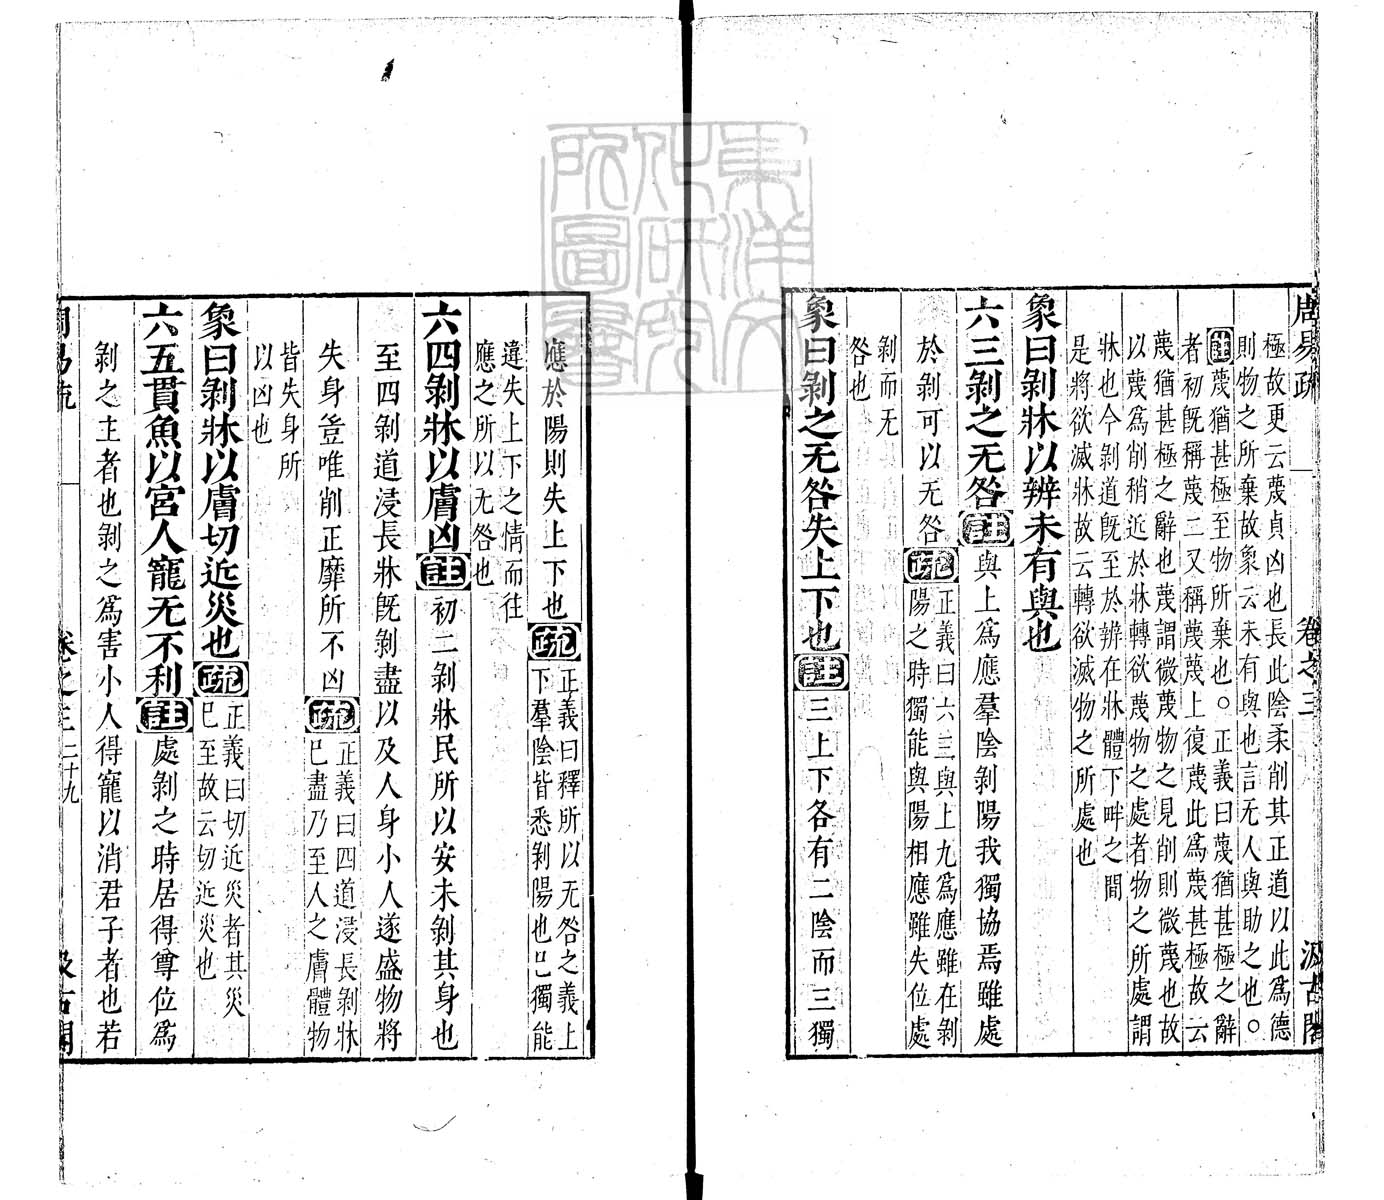 周易疏 卷之三 汲古閣
極故更云蔑貞凶也長此陰柔削其正道以此爲德
則物之所棄故象云未有與也言无人與助之也。
註蔑猶甚極至物所棄也。正義曰蔑猶甚極之辭
者初既稱蔑二又稱蔑蔑上復蔑此爲蔑甚極故云
蔑猶甚極之辭也蔑謂微蔑物之見削則微蔑也故
以蔑爲削稍近於牀轉欲蔑物之處者物之所處謂
牀也今剝道既至於辨在牀體下畔之間
是將欲滅牀故云轉欲滅物之所處也
象曰剝牀以辨未有與也
六三剝之无咎註與上爲應羣陰剝陽我獨協焉雖處
於剝可以无咎疏正義曰六三與上九爲應雖在剝
陽之時獨能與陽相應雖失位處
剝而无
咎也
象曰剝之无咎失上下也註三上下各有二陰而三獨
應於陽則失上下也疏正義曰釋所以无咎之義上
下羣陰皆悉剝陽也巳獨能
違失上下之情而往
應之所以无咎也
六四剝牀以膚凶註初二剝牀民所以安未剝其身也
至四剝道浸長牀既剝盡以及人身小人遂盛物將
失身豈唯削正靡所不凶疏正義曰四道浸長剝牀
巳盡乃至人之膚體物
皆失身所
以凶也
象曰剝牀以膚切近災也疏正義曰切近災者其災
巳至故云切近災也
六五貫魚以宮人寵无不利註處剝之時居得尊位爲
剝之主者也剝之爲害小人得寵以消君子者也若
周易疏 卷之三 二十九 汲古閣
東洋文化研究所圖書